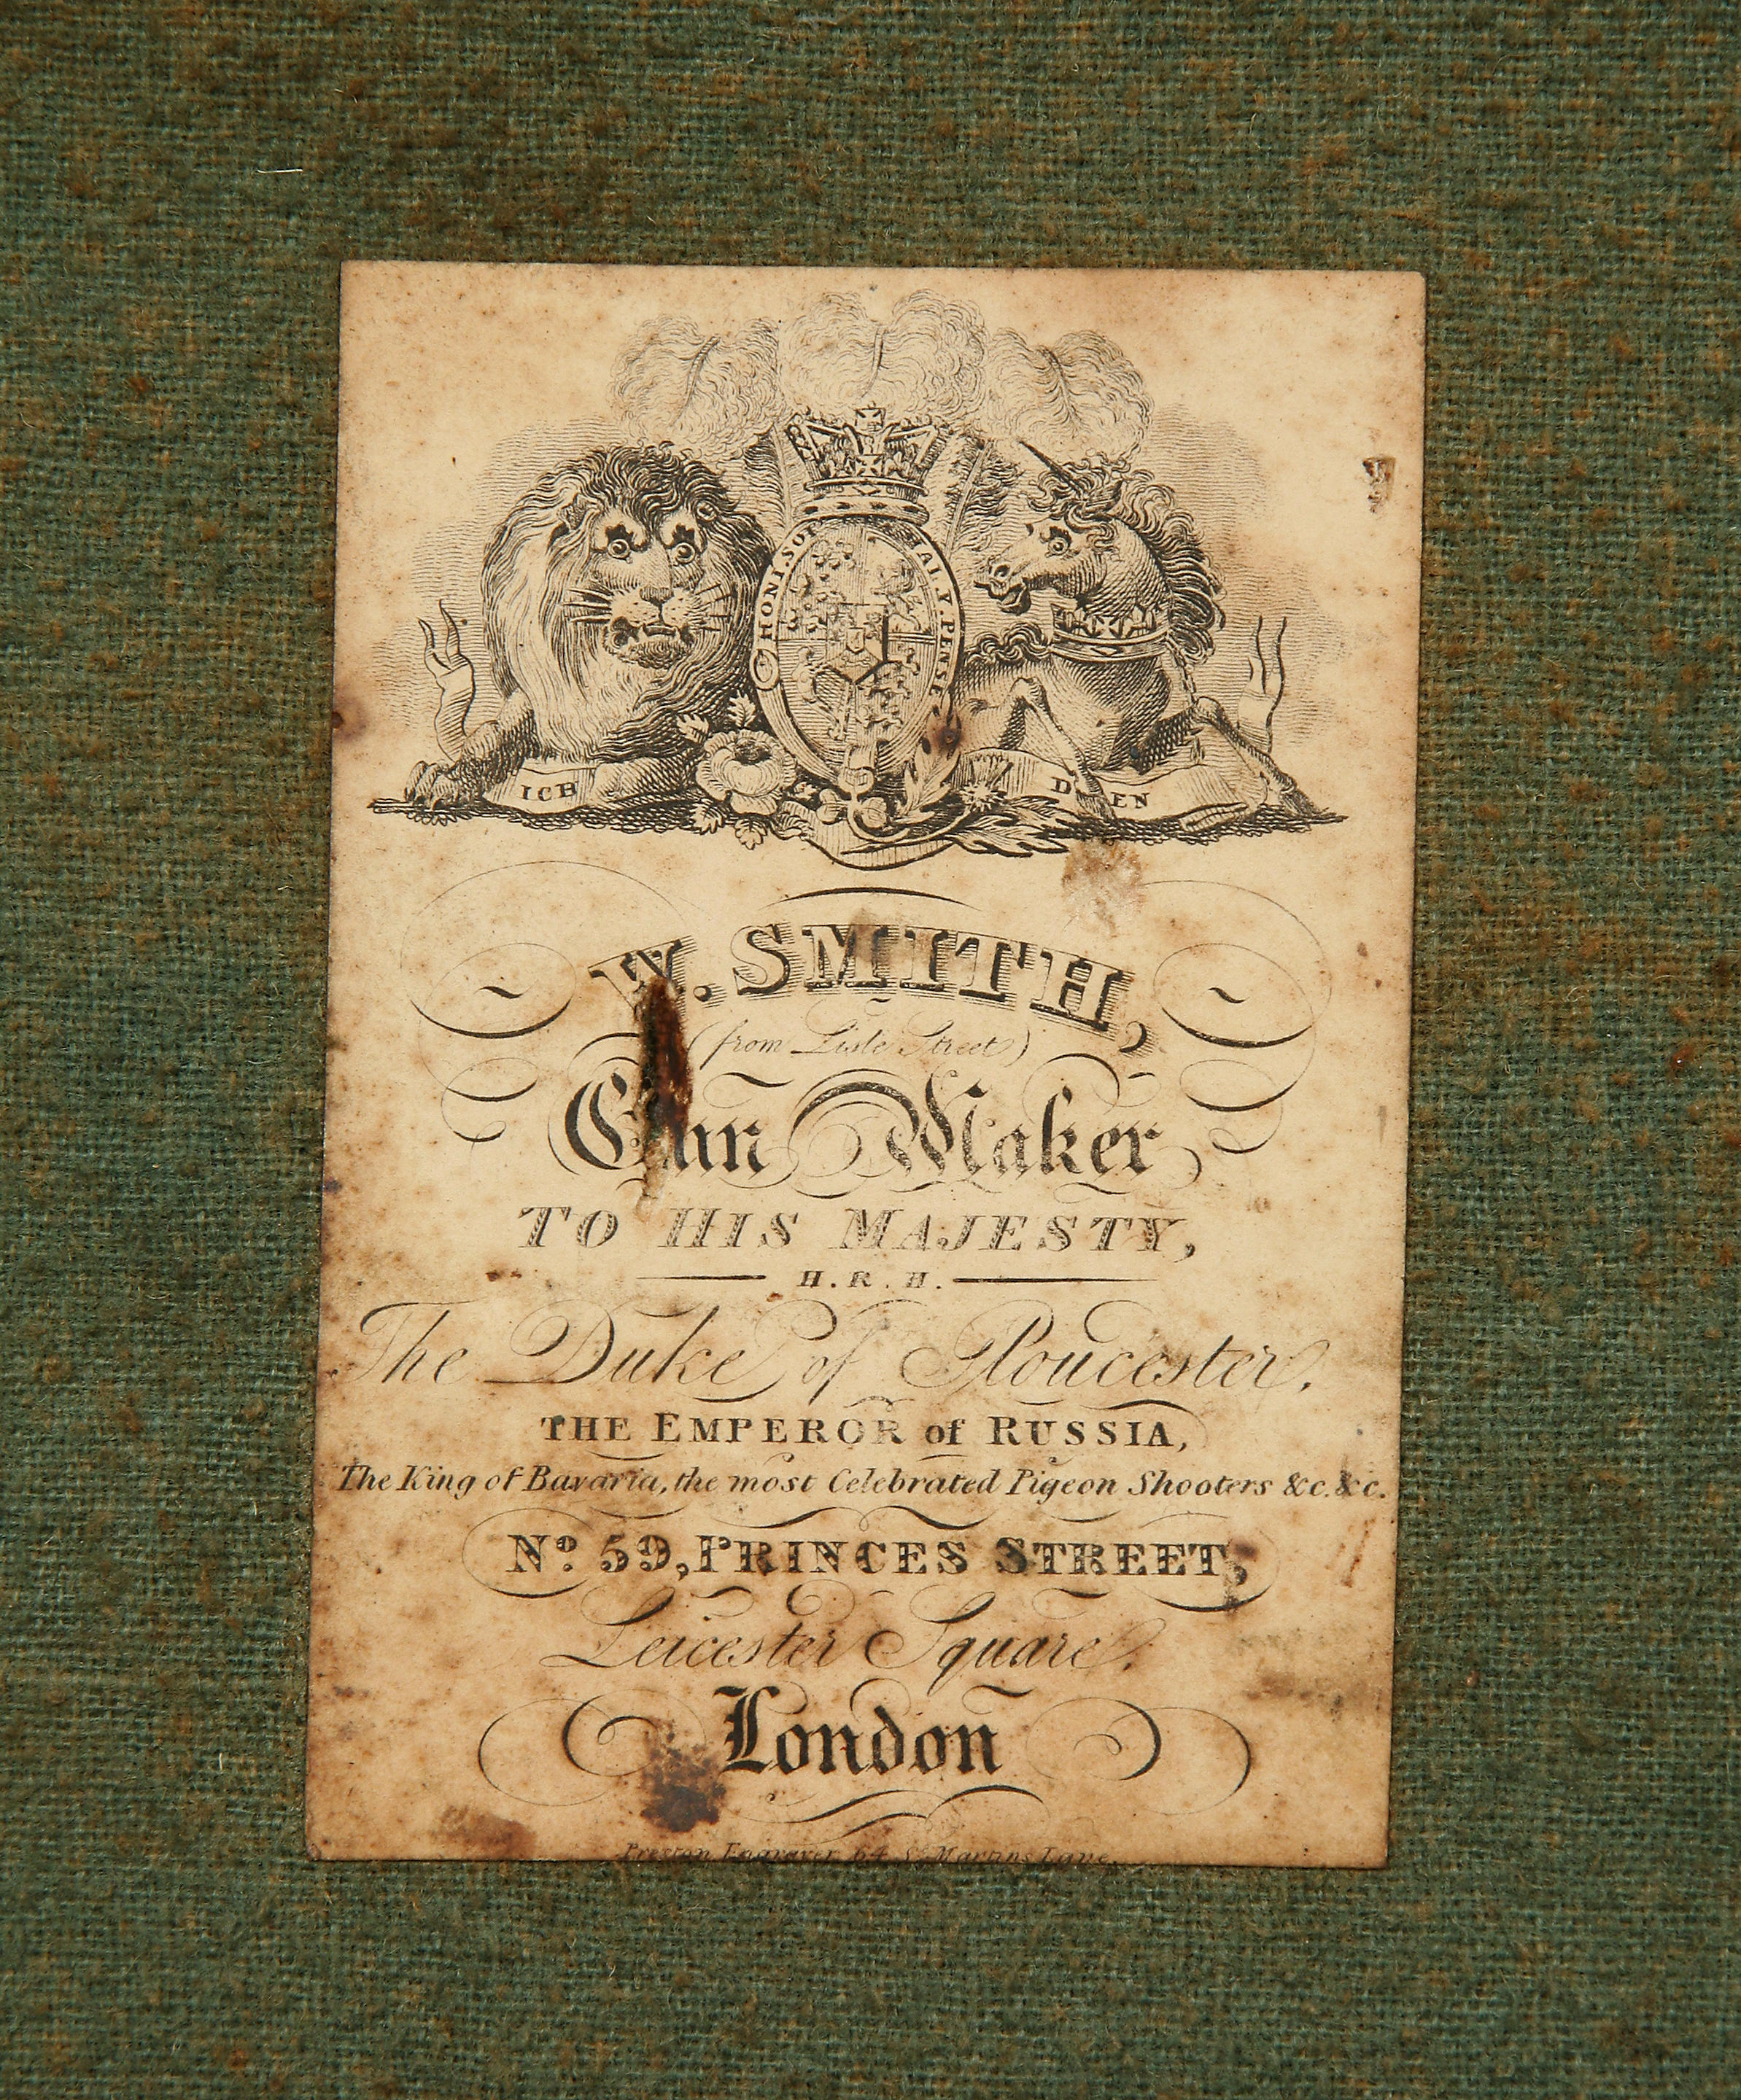 HONI.SOI MAL.Y.PENSE
ICH DIEN
W. SMITH,
(from Lisle Street)
Gun Maker
TO HIS MAJESTY,
H. R. H.
The Duke of Gloucester,
THE EMPEROR of RUSSIA,
The King of Bavaria, the most Celebrated Pigeon Shooters &c. &c.
No. 59, PRINCES STREET,
Leicester Square.
London
Preston Engraver 64 St. Martins Lane.